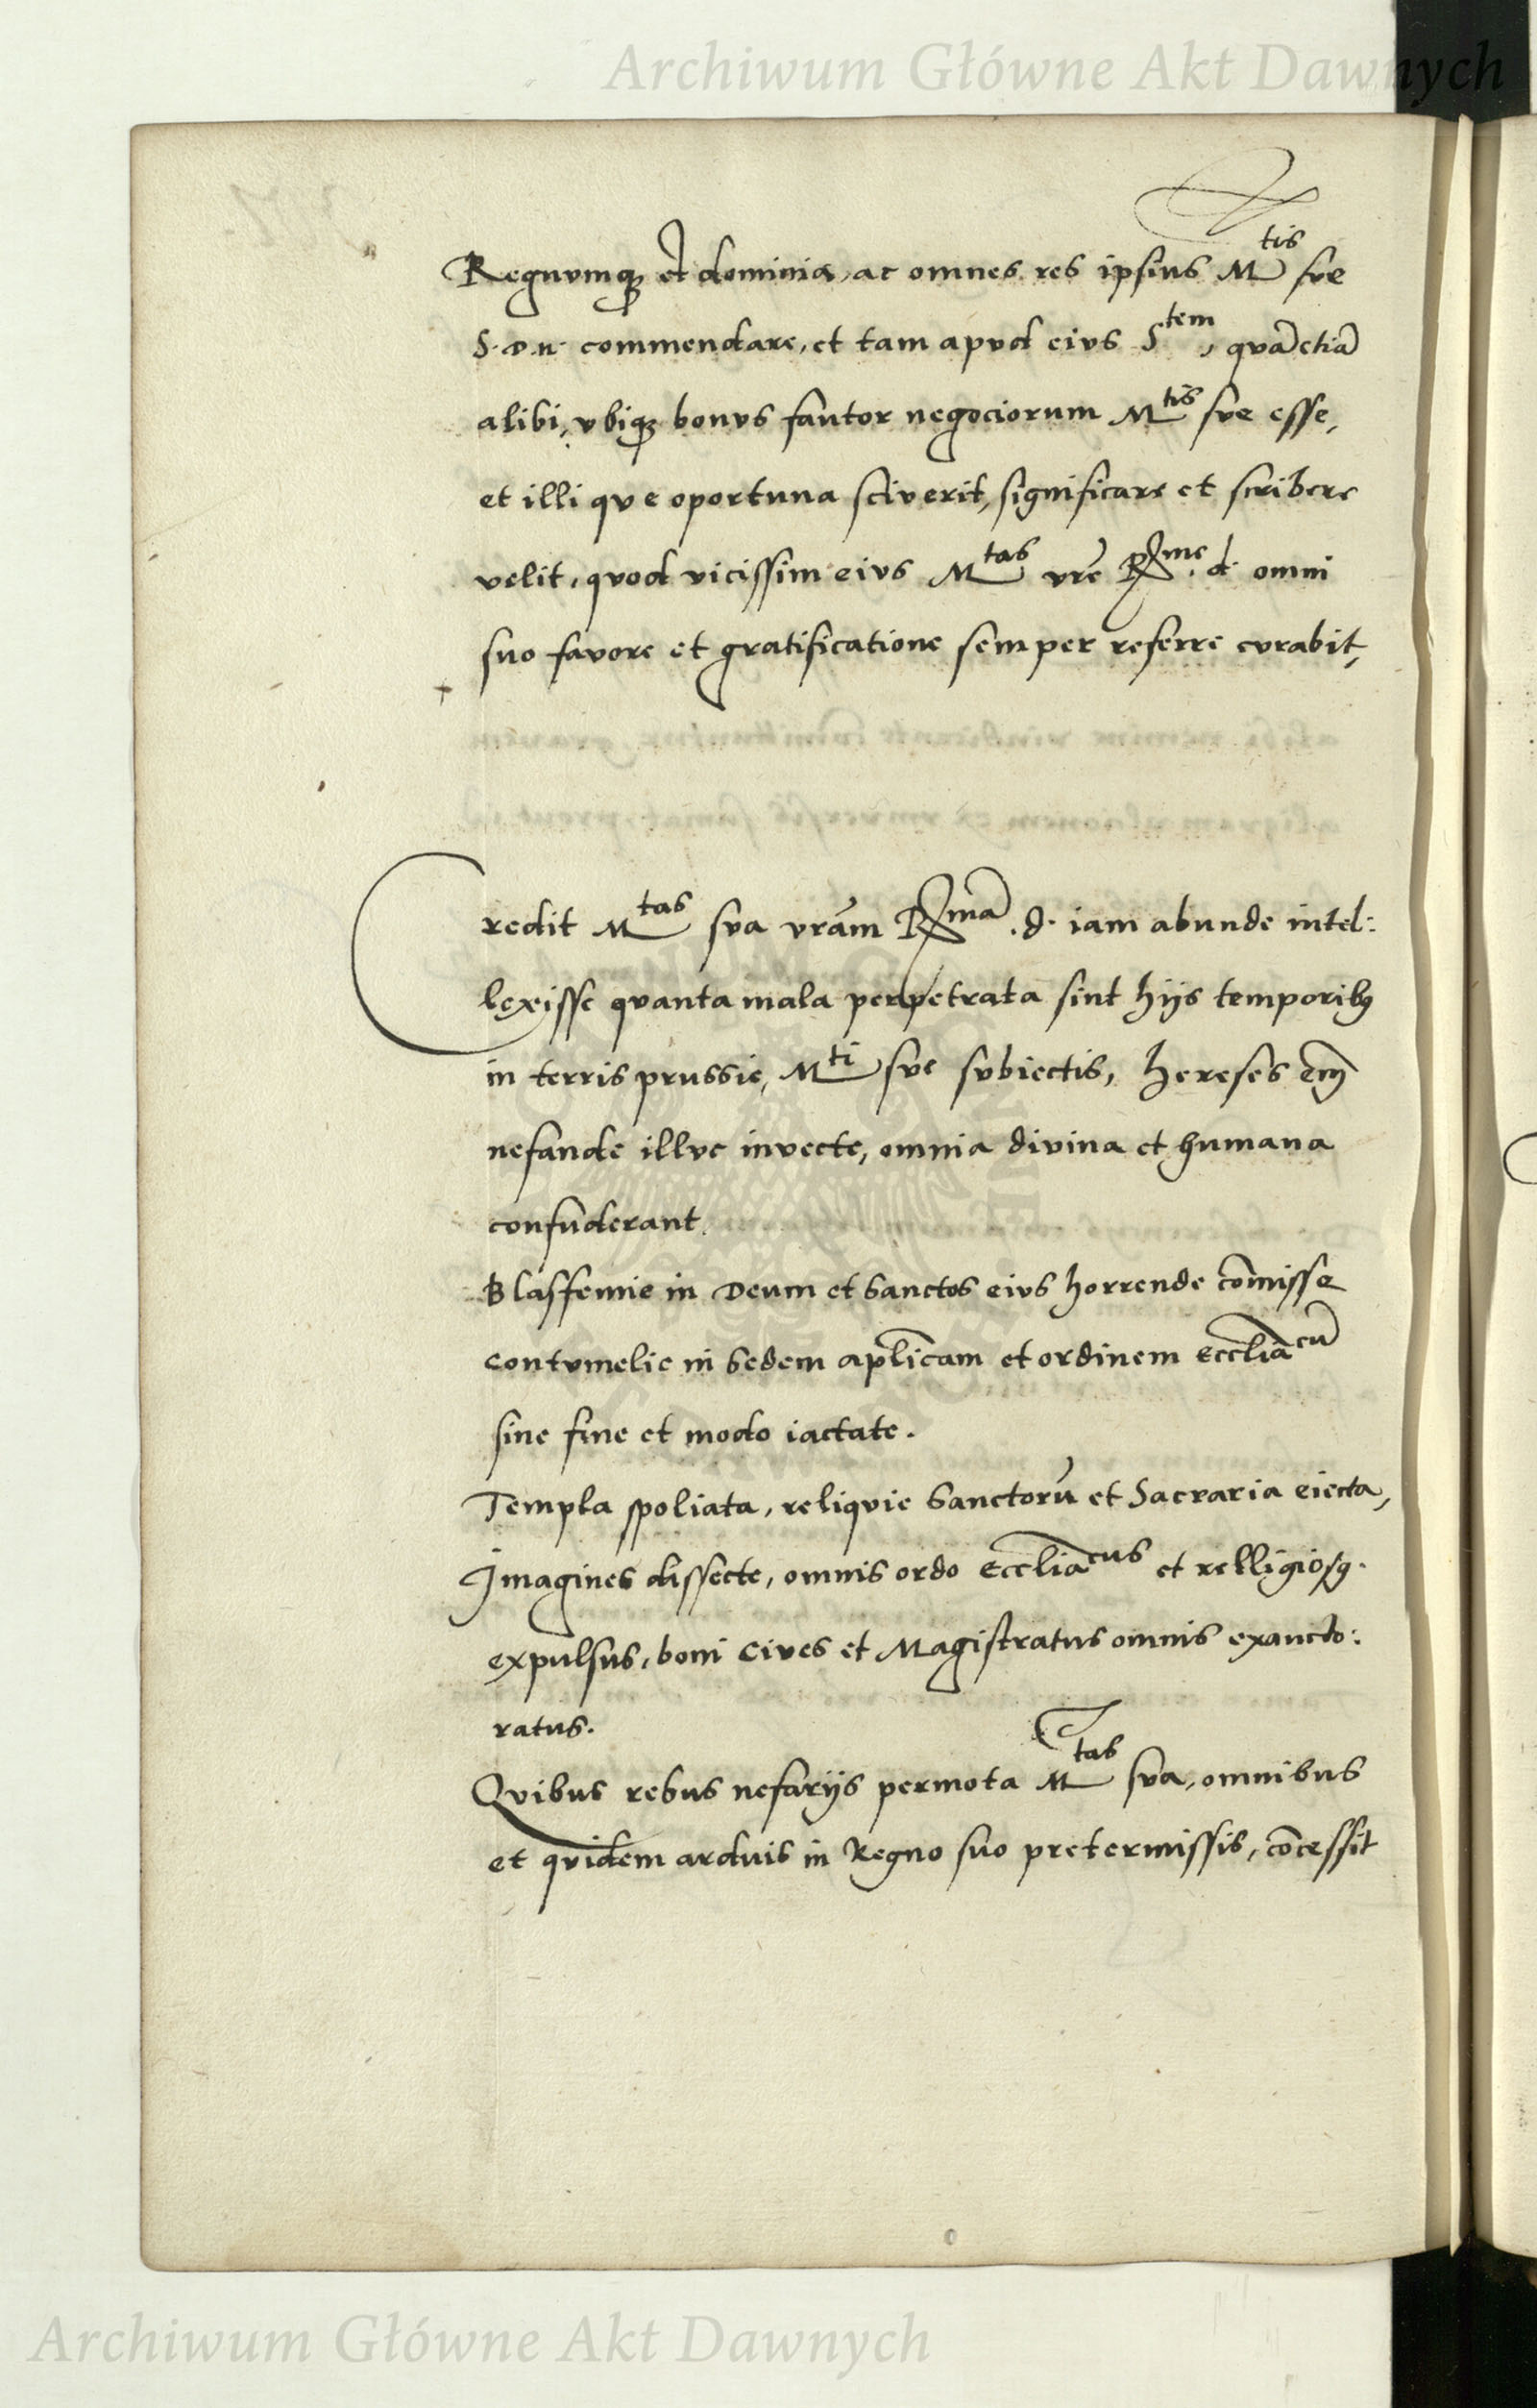 Archiwum Główne Akt Dawnych
Regnumq; et dominia, ac omnes res ipsius M^tis sve
S. D. n. commendare, et tam apvd eivs S^tem, qvā etiā
alibi, vbiq; bonvs fautor negociorum M^tis sve esse,
et illi qve oportuna sciverit, significare et scribere
velit, qvod vicissim eivs M^tas vrē R^me. d. omni
suo favore et gratificatione semper referre cvrabit,
Credit M^tas sva vrām R^mā. d. iam abunde intel:
lexisse qvanta mala perpetrata sint hijs temporib9
in terris prussie, M^ti sve svbiectis, hereses em̄
nefande illvc invecte, omnia divina et humana
confuderant.
Blasfemie in Deum et Sanctos eivs horrende cōmisse
contvmelie in Sedem aplicam et ordinem Eccliā^cū
sine fine et modo iactate.
Templa spoliata, reliqvie Sanctorū et Sacraria eiecta,
Imagines dissecte, omnis ordo Eccliā^cus et relligios9.
expulsus, boni Cives et Magistratus omnis exaucto:
ratus.
Qvibus rebus nefarijs permota M^tas sva, omnibus
et qvidem arduis in Regno suo pretermissis, cōcessit
Archiwum Główne Akt Dawnych